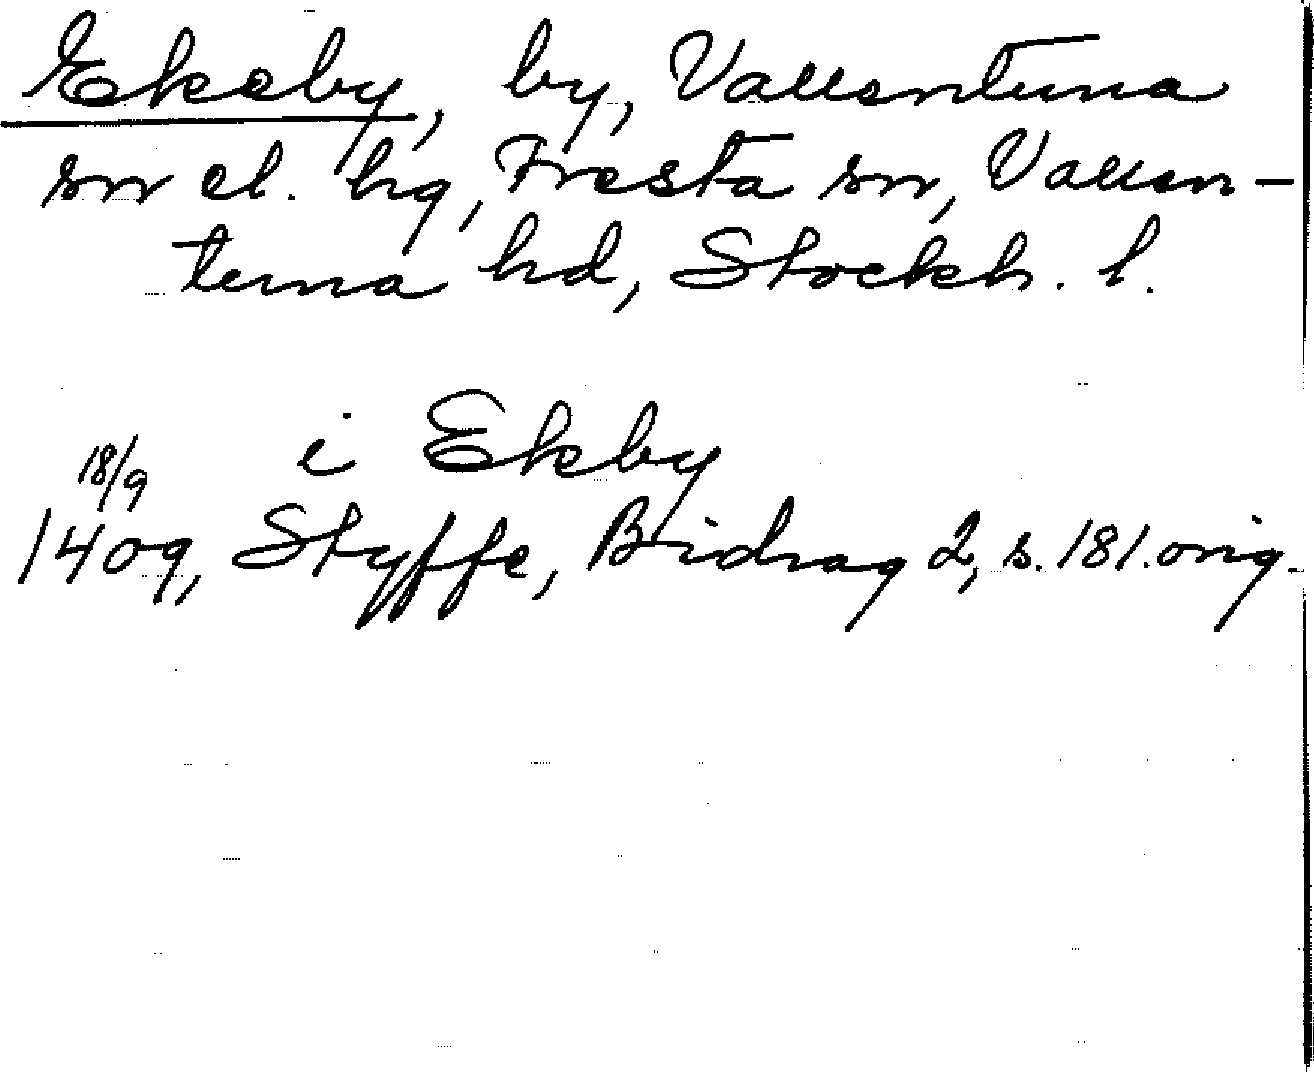 Ekeby, by, Vallentuna
sn el. hg, Fresta sn, Vallen-
tuna hd, Stockh. l.
i Ekby
18/9
1409, Styffe, Bidrag 2, s. 181. orig.